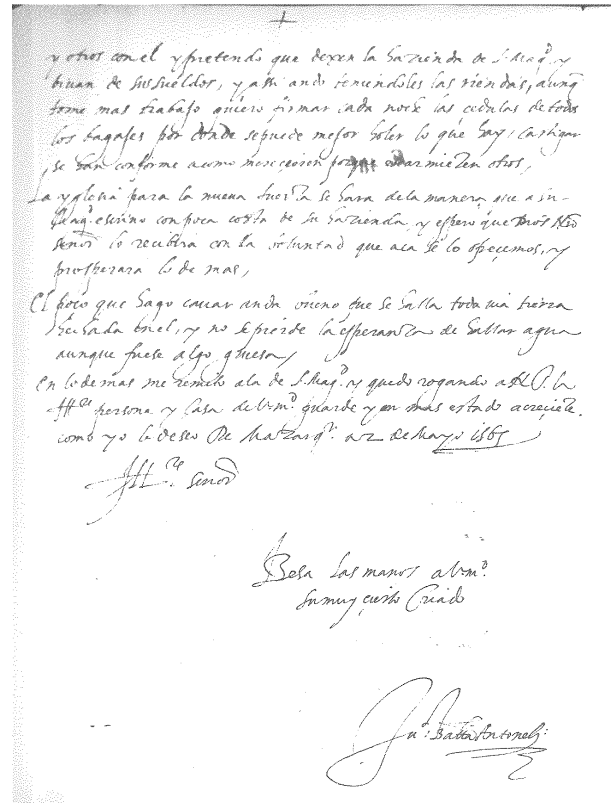 +
y otros con el y pretendo que dexen la hazienda de S. Magd. y
biuan de sus sueldos, y assi ando teniendoles las riendas, aunq
tome mas trabajo quiero firmar cada noche las cedulas de todos
los bagajes por donde se puede mejor ver lo que hay, castigar
se han conforme a como merecieren porque escarmienten otros,
La yglesia para la nueua fuerça se hara de la manera que a su
Magd. escriuo con poca costa de su hazienda, y espero que Dios Nro
señor lo recibira con la voluntad que aca se lo ofrecemos, y
prosperara lo de mas,
El poco que hago cauar anda bueno que se halla toda uia tierra
echada en el, y no se pierde la esperança de hallar agua
aunque fuese algo gruesa,
En lo de mas me remito a la de S. Magd. y quedo rogando a N. S. la
Illre persona y casa de v. md. guarde y en mas estado acreciente.
como yo lo deseo De Mazarqr. a 2 de Mayo 1565
Illre señor
Besa las manos a v. md.
su muy cierto Criado
Jua. Batta Antonelli